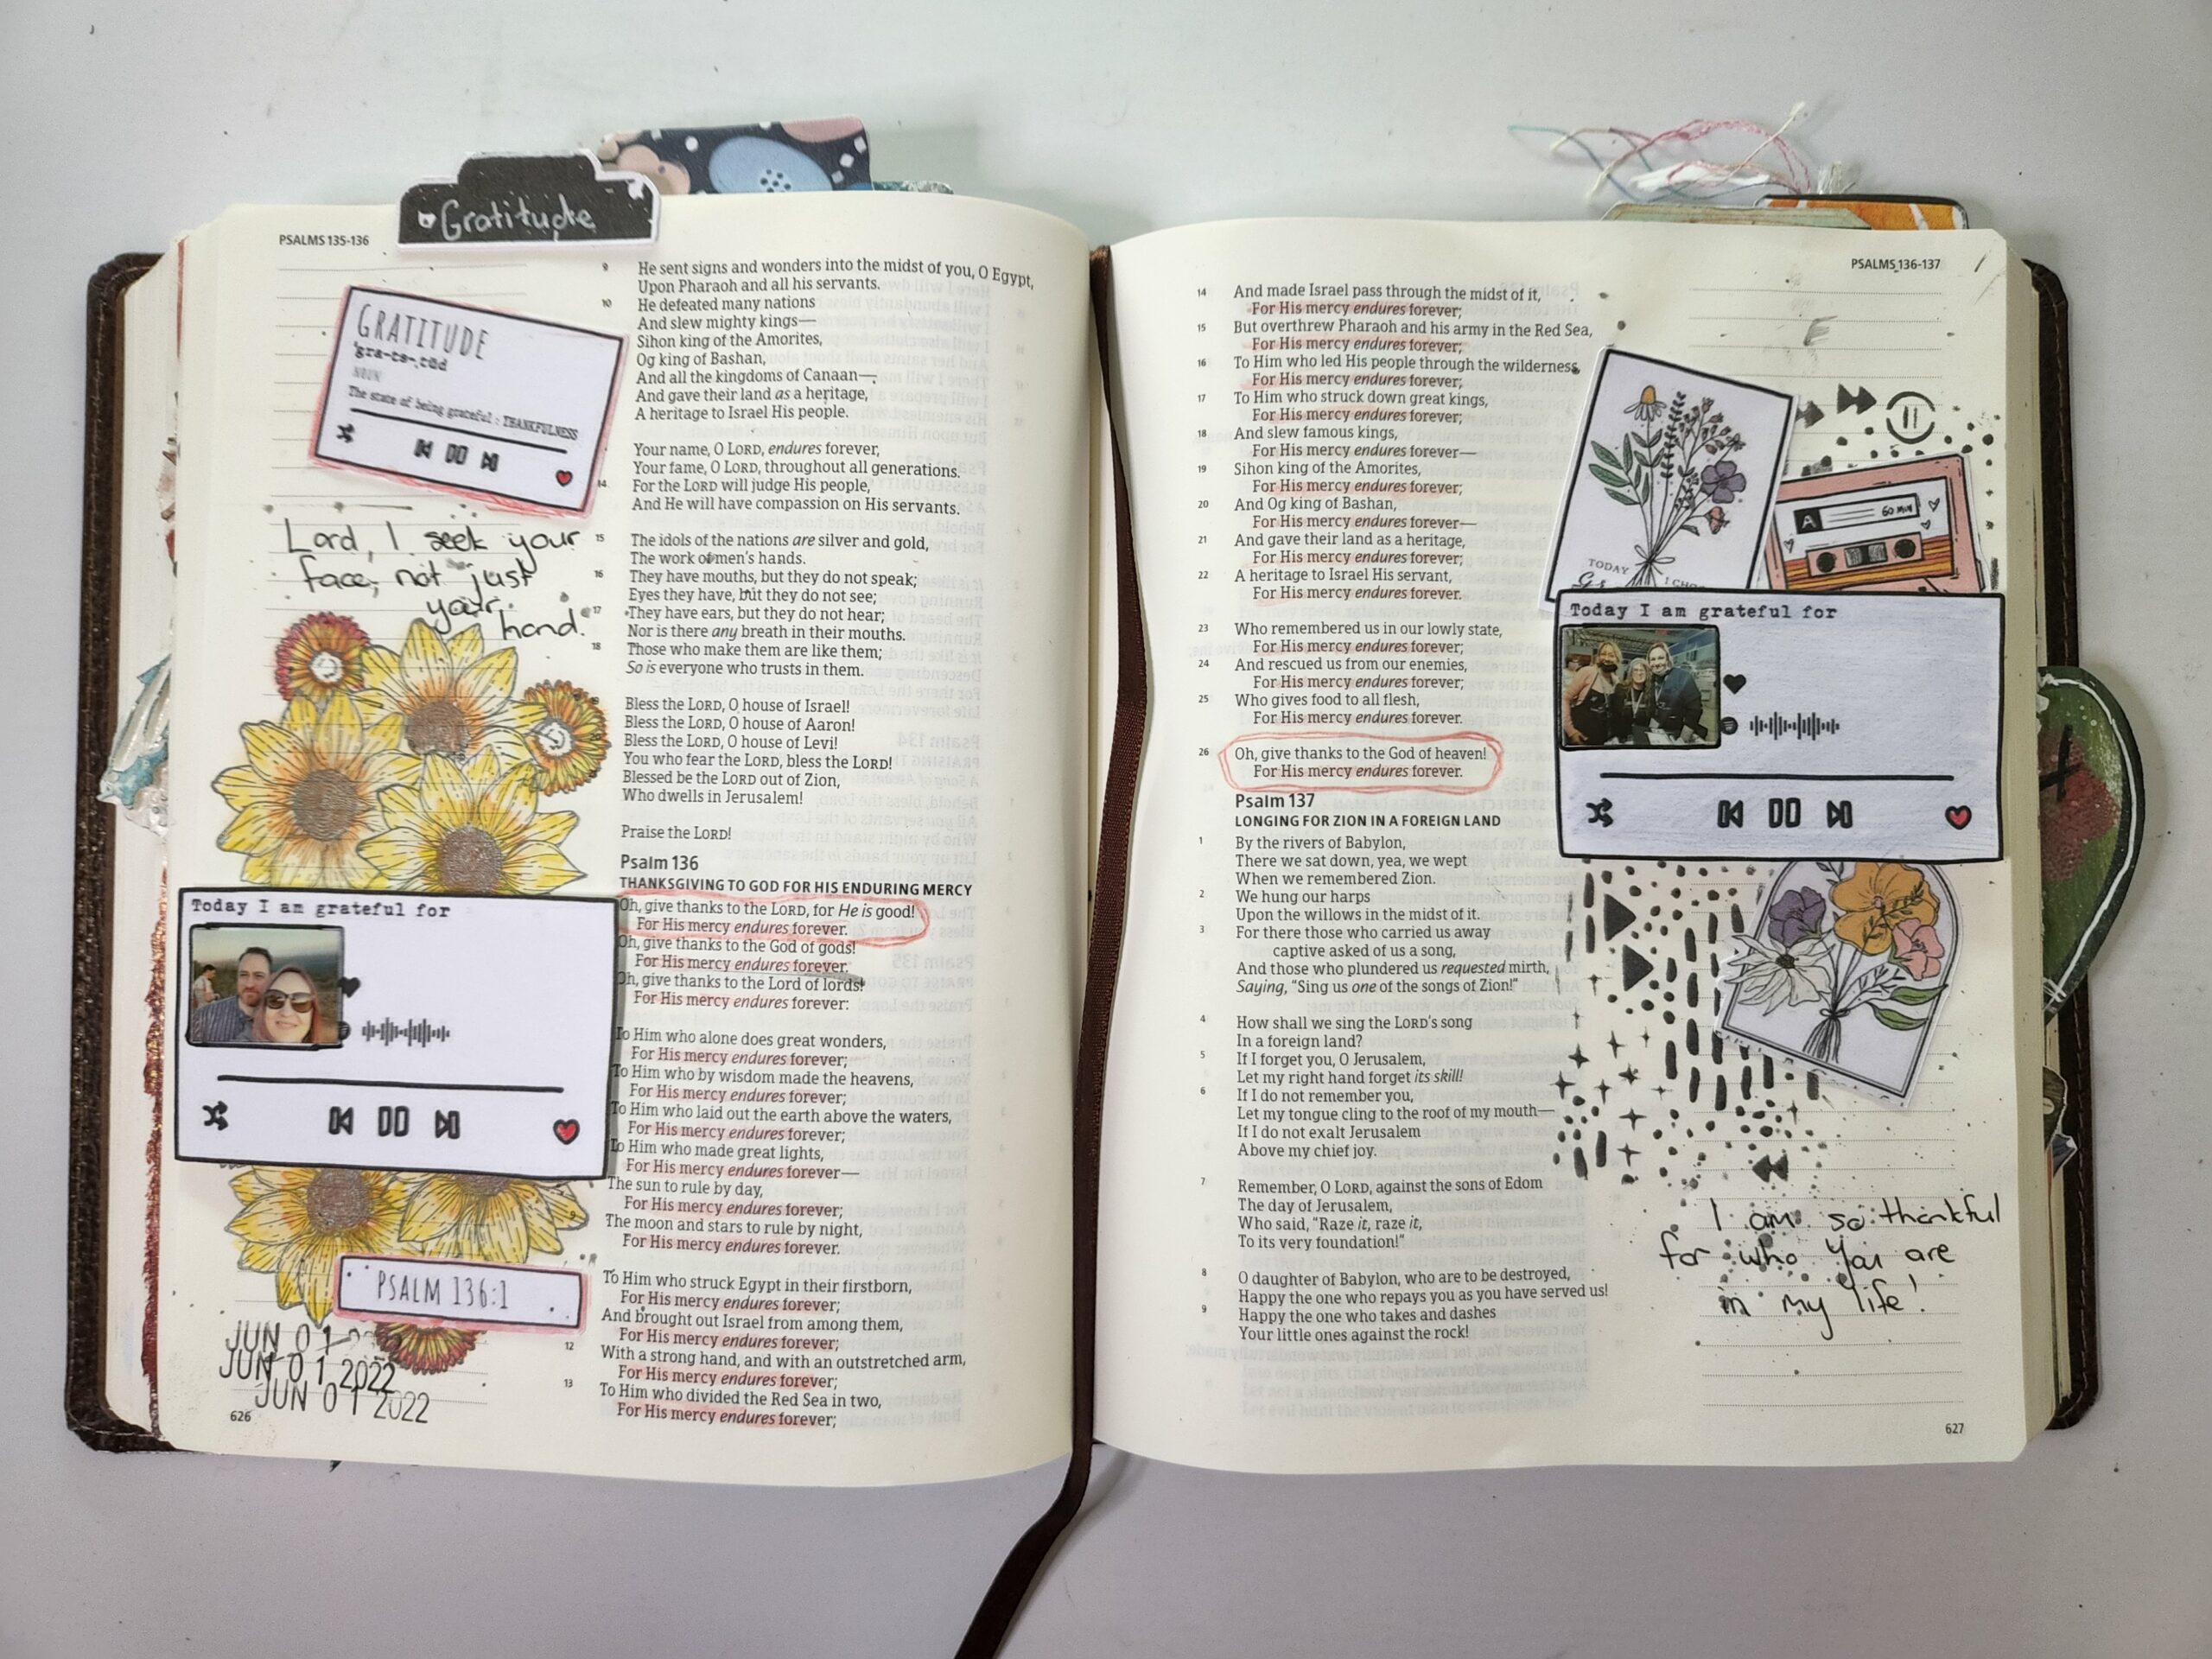 Gratitude
PSALMS 135-136
GRATITUDE
'gra-tə-ˌtüd
NOUN
The state of being grateful : THANKFULNESS
Lord, I seek your
face, not just
your
hand.
Today I am grateful for
PSALM 136:1
JUN 01
JUN 01 2022
JUN 01 2022
626
9 He sent signs and wonders into the midst of you, O Egypt,
Upon Pharaoh and all his servants.
10 He defeated many nations
And slew mighty kings—
Sihon king of the Amorites,
Og king of Bashan,
And all the kingdoms of Canaan—
And gave their land as a heritage,
A heritage to Israel His people.
Your name, O LORD, endures forever,
Your fame, O LORD, throughout all generations.
14 For the LORD will judge His people,
And He will have compassion on His servants.
15 The idols of the nations are silver and gold,
The work of men's hands.
16 They have mouths, but they do not speak;
Eyes they have, but they do not see;
17 They have ears, but they do not hear;
Nor is there any breath in their mouths.
18 Those who make them are like them;
So is everyone who trusts in them.
Bless the LORD, O house of Israel!
Bless the LORD, O house of Aaron!
20 Bless the LORD, O house of Levi!
You who fear the LORD, bless the LORD!
Blessed be the LORD out of Zion,
Who dwells in Jerusalem!
Praise the LORD!
Psalm 136
THANKSGIVING TO GOD FOR HIS ENDURING MERCY
Oh, give thanks to the LORD, for He is good!
For His mercy endures forever.
Oh, give thanks to the God of gods!
For His mercy endures forever.
Oh, give thanks to the Lord of lords!
For His mercy endures forever:
To Him who alone does great wonders,
For His mercy endures forever;
To Him who by wisdom made the heavens,
For His mercy endures forever;
To Him who laid out the earth above the waters,
For His mercy endures forever;
To Him who made great lights,
For His mercy endures forever—
The sun to rule by day,
For His mercy endures forever;
The moon and stars to rule by night,
For His mercy endures forever.
To Him who struck Egypt in their firstborn,
For His mercy endures forever;
And brought out Israel from among them,
For His mercy endures forever;
12 With a strong hand, and with an outstretched arm,
For His mercy endures forever;
13 To Him who divided the Red Sea in two,
For His mercy endures forever;
PSALMS 136-137
14 And made Israel pass through the midst of it,
For His mercy endures forever;
15 But overthrew Pharaoh and his army in the Red Sea,
For His mercy endures forever;
16 To Him who led His people through the wilderness,
For His mercy endures forever;
17 To Him who struck down great kings,
For His mercy endures forever;
18 And slew famous kings,
For His mercy endures forever—
19 Sihon king of the Amorites,
For His mercy endures forever;
20 And Og king of Bashan,
For His mercy endures forever—
21 And gave their land as a heritage,
For His mercy endures forever;
22 A heritage to Israel His servant,
For His mercy endures forever.
23 Who remembered us in our lowly state,
For His mercy endures forever;
24 And rescued us from our enemies,
For His mercy endures forever;
25 Who gives food to all flesh,
For His mercy endures forever.
26 Oh, give thanks to the God of heaven!
For His mercy endures forever.
Psalm 137
LONGING FOR ZION IN A FOREIGN LAND
1 By the rivers of Babylon,
There we sat down, yea, we wept
When we remembered Zion.
2 We hung our harps
Upon the willows in the midst of it.
3 For there those who carried us away
captive asked of us a song,
And those who plundered us requested mirth,
Saying, “Sing us one of the songs of Zion!”
4 How shall we sing the LORD's song
In a foreign land?
5 If I forget you, O Jerusalem,
Let my right hand forget its skill!
6 If I do not remember you,
Let my tongue cling to the roof of my mouth—
If I do not exalt Jerusalem
Above my chief joy.
7 Remember, O LORD, against the sons of Edom
The day of Jerusalem,
Who said, “Raze it, raze it,
To its very foundation!”
8 O daughter of Babylon, who are to be destroyed,
Happy the one who repays you as you have served us!
9 Happy the one who takes and dashes
Your little ones against the rock!
TODAY I CHO
A 60 MIN
Today I am grateful for
I am so thankful
for who You are
in my life!
627